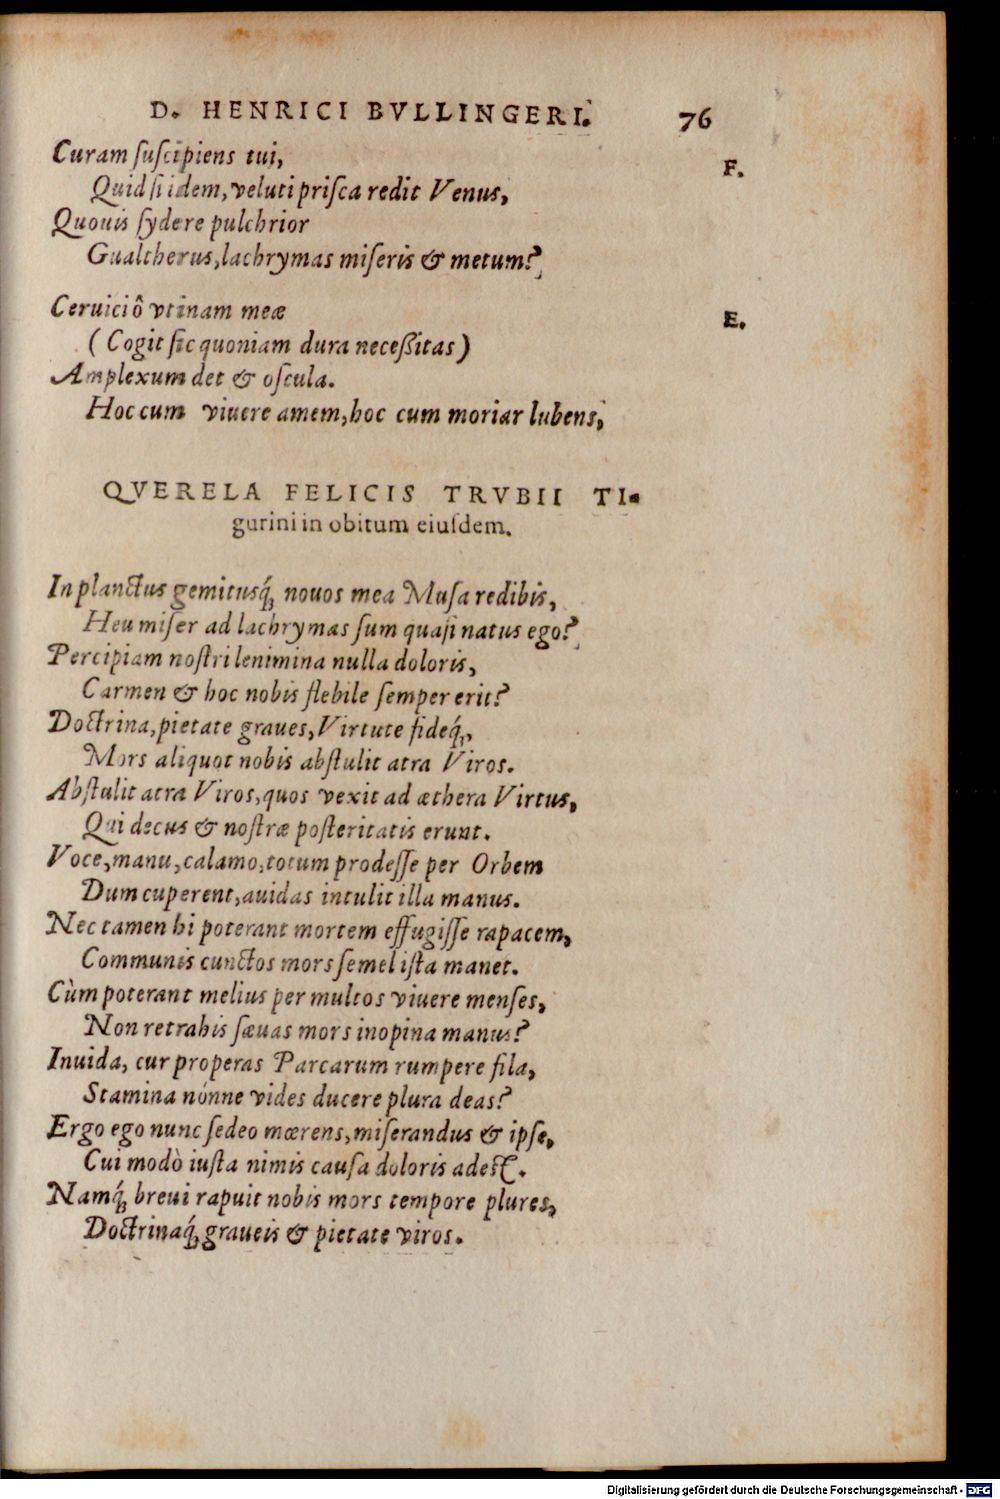 D. HENRICI BVLLINGERI. 76
Curam ſuſcipiens tui, F.
Quid ſi idem, veluti priſca redit Venus,
Quouis ſydere pulchrior
Gualtherus, lachrymas miſeris & metum?
Ceruici ô vtinam meæ E.
(Cogit ſic quoniam dura neceßitas)
Amplexum det & oſcula.
Hoc cum viuere amem, hoc cum moriar lubens,
QVERELA FELICIS TRVBII TI-
gurini in obitum eiuſdem.
In planctus gemituſq́; nouos mea Muſa redibis,
Heu miſer ad lachrymas ſum quaſi natus ego?
Percipiam noſtri lenimina nulla doloris,
Carmen & hoc nobis flebile ſemper erit?
Doctrina, pietate graues, Virtute fideq́;,
Mors aliquot nobis abſtulit atra Viros.
Abſtulit atra Viros, quos vexit ad æthera Virtus,
Qui decus & noſtræ poſteritatis erunt.
Voce, manu, calamo, totum prodeſſe per Orbem
Dum cuperent, auidas intulit illa manus.
Nec tamen hi poterant mortem effugiſſe rapacem,
Communis cunctos mors ſemel iſta manet.
Cùm poterant melius per multos viuere menſes,
Non retrahis ſæuas mors inopina manus?
Inuida, cur properas Parcarum rumpere fila,
Stamina nónne vides ducere plura deas?
Ergo ego nunc ſedeo mœrens, miſerandus & ipſe,
Cui modò iuſta nimis cauſa doloris adeſt.
Namq́; breui rapuit nobis mors tempore plures,
Doctrinaq́; graueis & pietate viros.
Digitalisierung gefördert durch die Deutsche Forschungsgemeinschaft - DFG